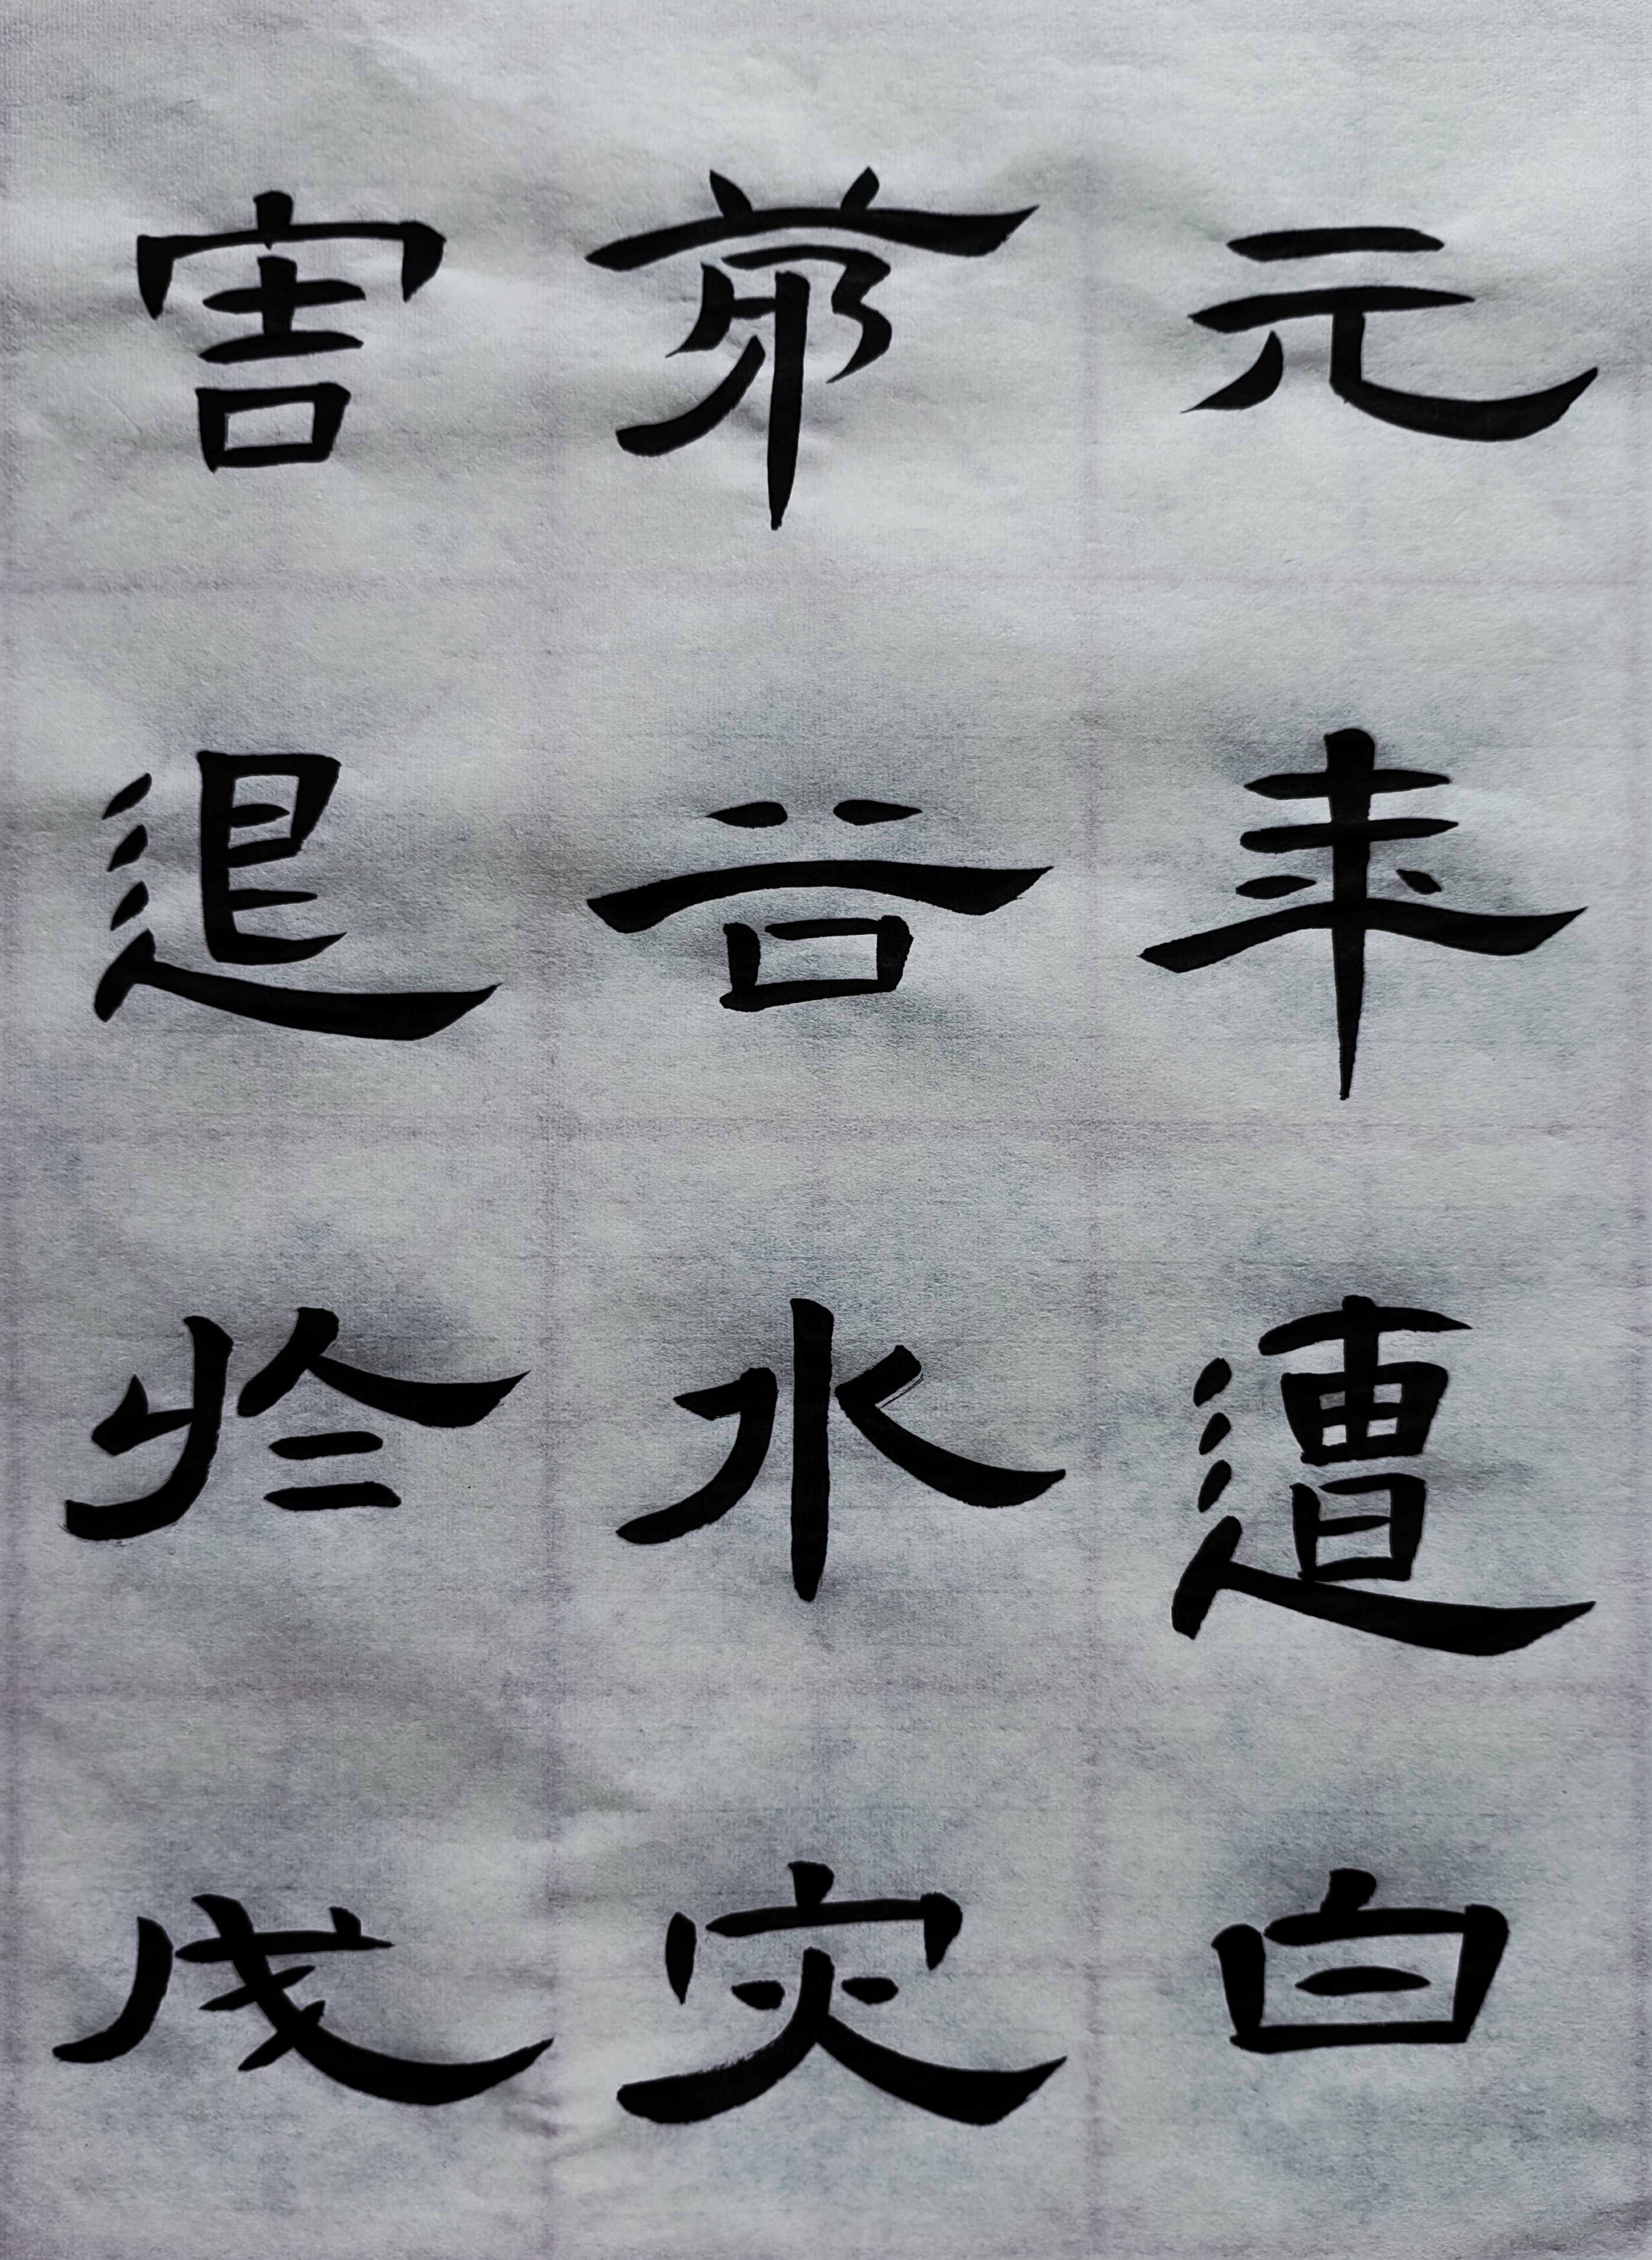 元年遭白
茅谷水灾
害退於戌